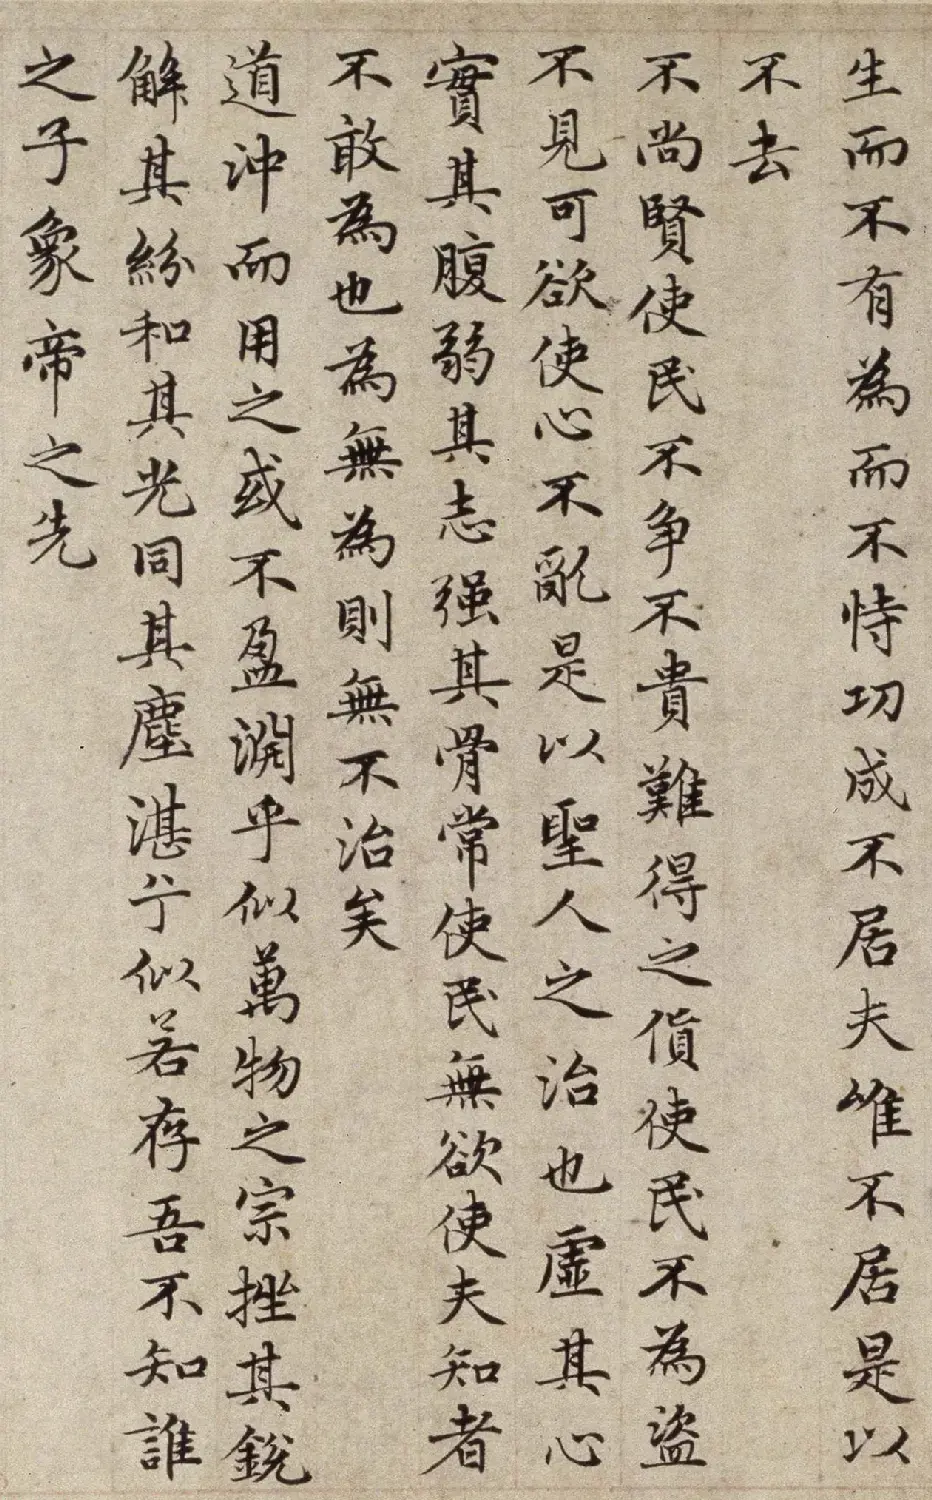 生而不有為而不恃功成不居夫唯不居是以
不去
不尚賢使民不争不貴難得之貨使民不為盜
不見可欲使心不亂是以聖人之治也虛其心
實其腹弱其志强其骨常使民無欲使夫知者
不敢為也為無為則無不治矣
道沖而用之或不盈淵乎似萬物之宗挫其銳
解其紛和其光同其塵湛兮似若存吾不知誰
之子象帝之先